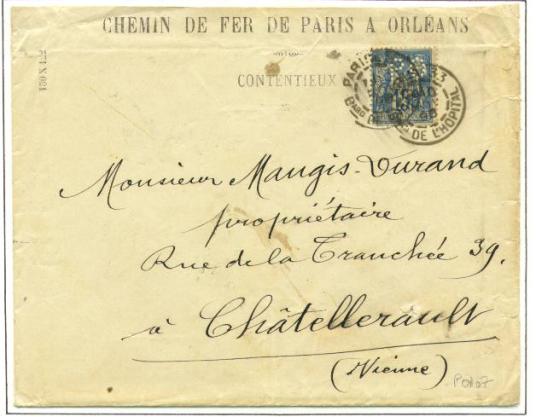 CHEMIN DE FER DE PARIS A ORLÉANS
CONTENTIEUX
PARIS
33
DE L'HOPITAL
Monsieur Maugis-Durand
propriétaire
Rue de la Tranchée 39.
à Châtellerault
(Vienne)